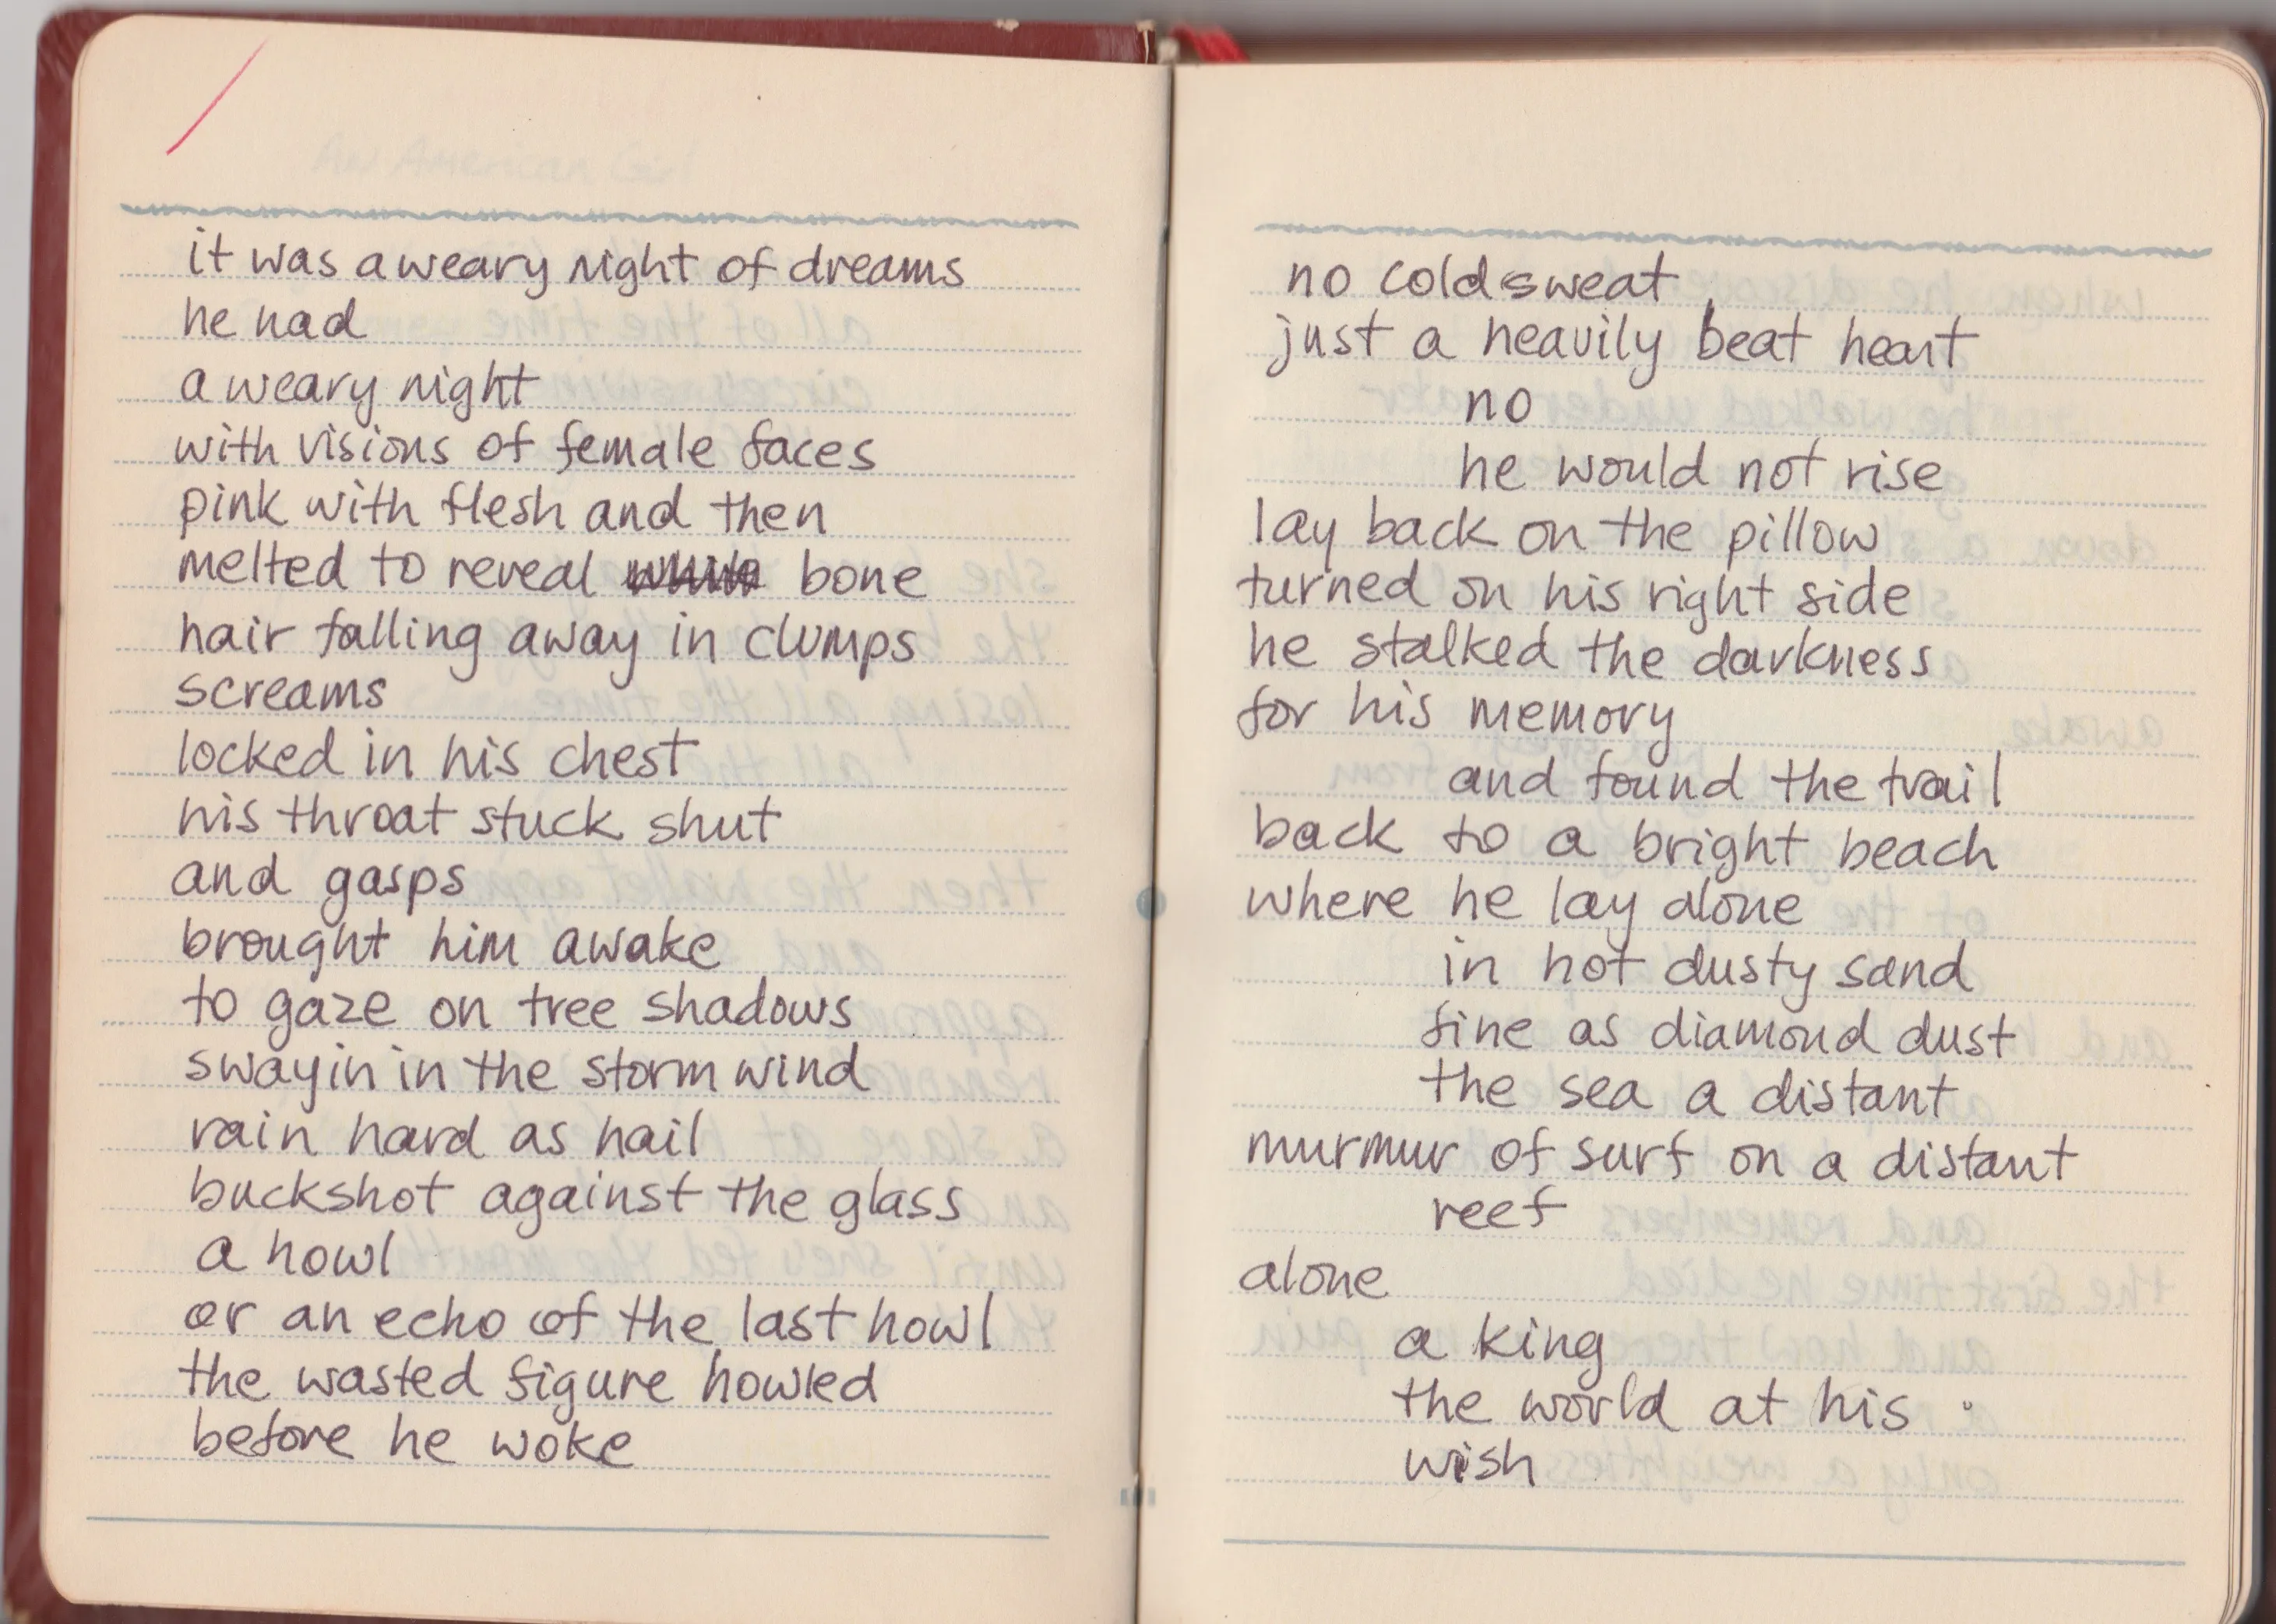 it was a weary night of dreams
he had
a weary night
with visions of female faces
pink with flesh and then
melted to reveal bone
hair falling away in clumps
screams
locked in his chest
his throat stuck shut
and gasps
brought him awake
to gaze on tree shadows
swayin in the storm wind
rain hard as hail
buckshot against the glass
a howl
or an echo of the last howl
the wasted figure howled
before he woke
no cold sweat
just a heavily beat heart
no
he would not rise
lay back on the pillow
turned on his right side
he stalked the darkness
for his memory
and found the trail
back to a bright beach
where he lay alone
in hot dusty sand
fine as diamond dust
the sea a distant
murmur of surf on a distant
reef
alone
a king
the world at his
wish